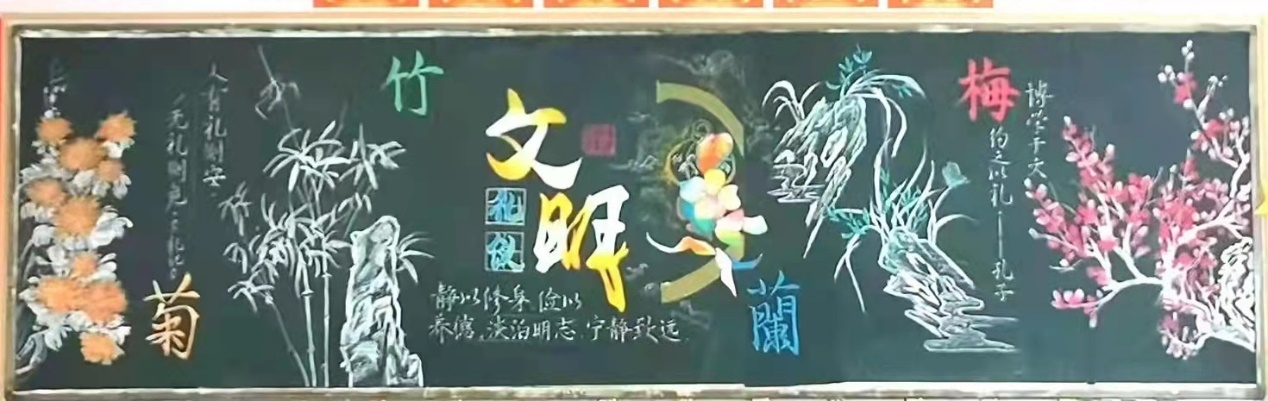 人有礼则安
无礼则危·礼记
菊
竹
文明
礼仪
静以修身 俭以
养德,淡泊明志.宁静致远.
蘭
梅
博学于文
约之以礼——孔子